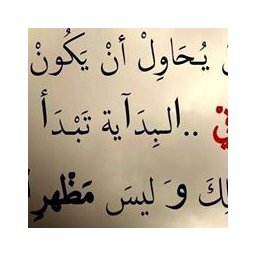 يُحَاوِلْ أنْ يَكُونْ
..البِدَآية تَبْدَأ
وَ ليسَ مَظْهرِ